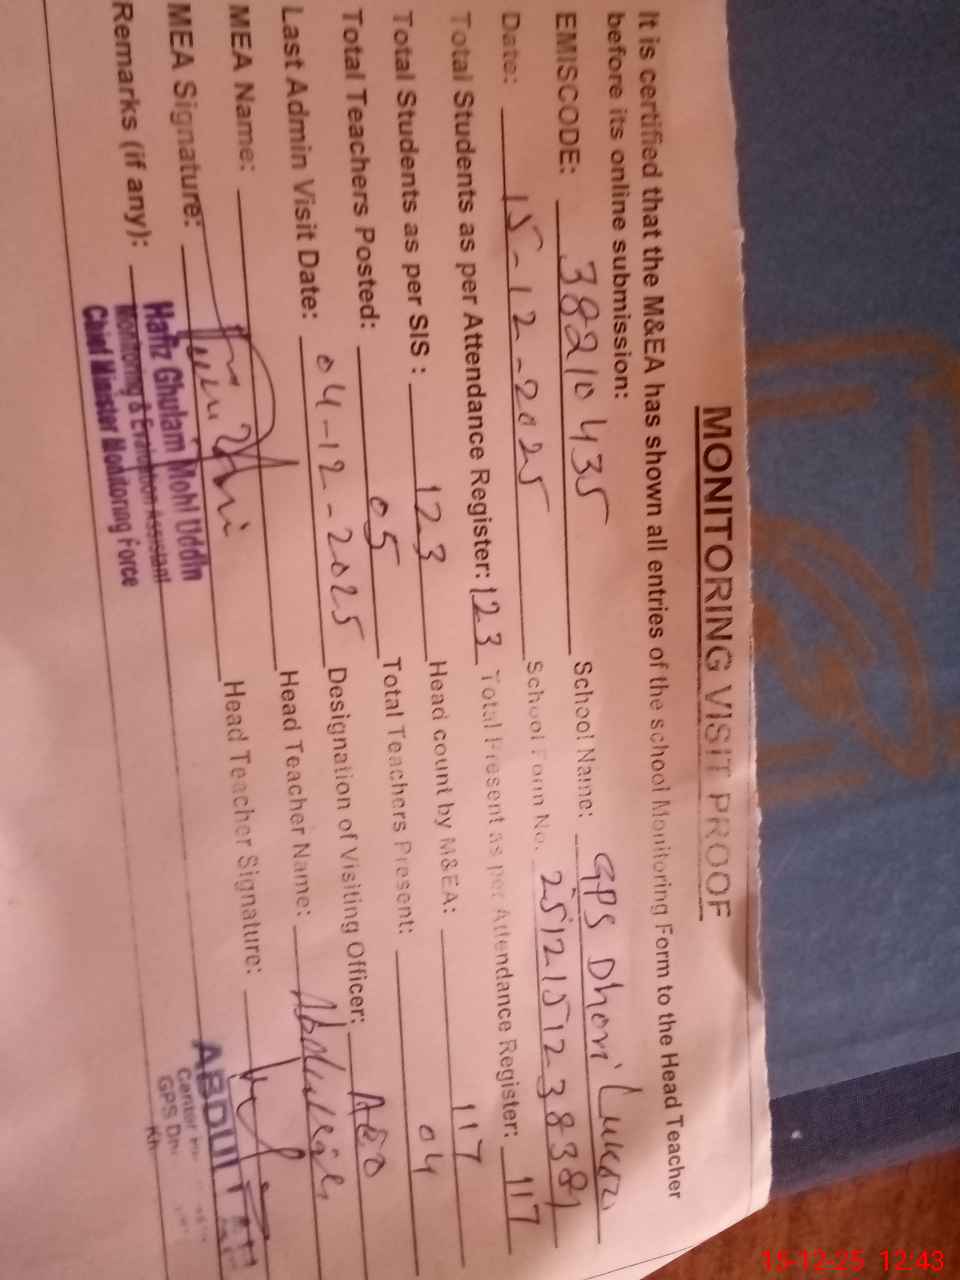 MONITORING VISIT PROOF
It is certified that the M&EA has shown all entries of the school Monitoring Form to the Head Teacher
before its online submission:
EMISCODE: 38210435 School Name: GPS Dhori
Date: 15-12-2025 School Form No.
Total Students as per Attendance Register: 123 Total Present as per Attendance Register: 117
Total Students as per SIS : 123 Head count by M&EA: 117
Total Teachers Posted: 05 Total Teachers Present: 04
Last Admin Visit Date: 04-12-2025 Designation of Visiting Officer: AEO
MEA Name: Head Teacher Name:
MEA Signature: Head Teacher Signature:
Remarks (if any):
Hafiz Ghulam Mohi Uddin
Monitoring & Evaluation Assistant
Chief Minister Monitoring Force
ABDUL
GPS
15-12-25 12:43